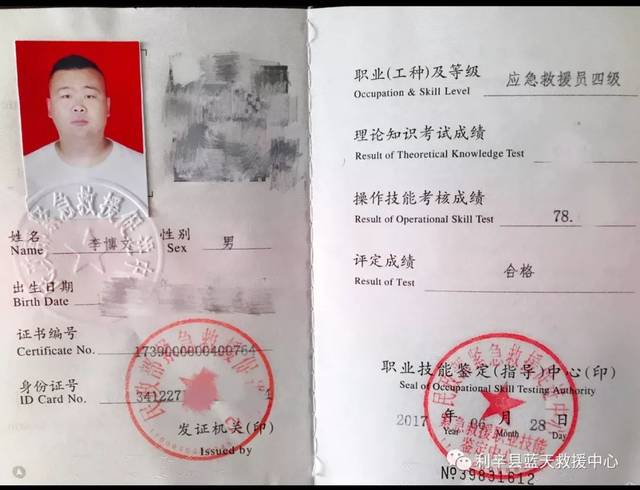 姓名 李博文 性别 男
Name Sex
出生日期
Birth Date
证书编号
Certificate No. 1739000000400764
身份证号 341227
ID Card No. 1
发证机关(印)
Issued by
职业(工种)及等级 应急救援员四级
Occupation & Skill Level
理论知识考试成绩
Result of Theoretical Knowledge Test
操作技能考核成绩
Result of Operational Skill Test 78.
评定成绩 合格
Result of Test
职业技能鉴定(指导)中心(印)
Seal of Occupational Skill Testing Authority
2017 年 06 月 28 日
Year Month Day
№39831612
利辛县蓝天救援中心